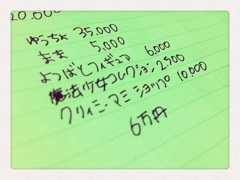 20,000
ゆうちょ 35,000
おま 5,000
よつばとフィギュア 6,000
魔法少女コレクション 2500
クリィミーマミ ショップ 10,000
6万円